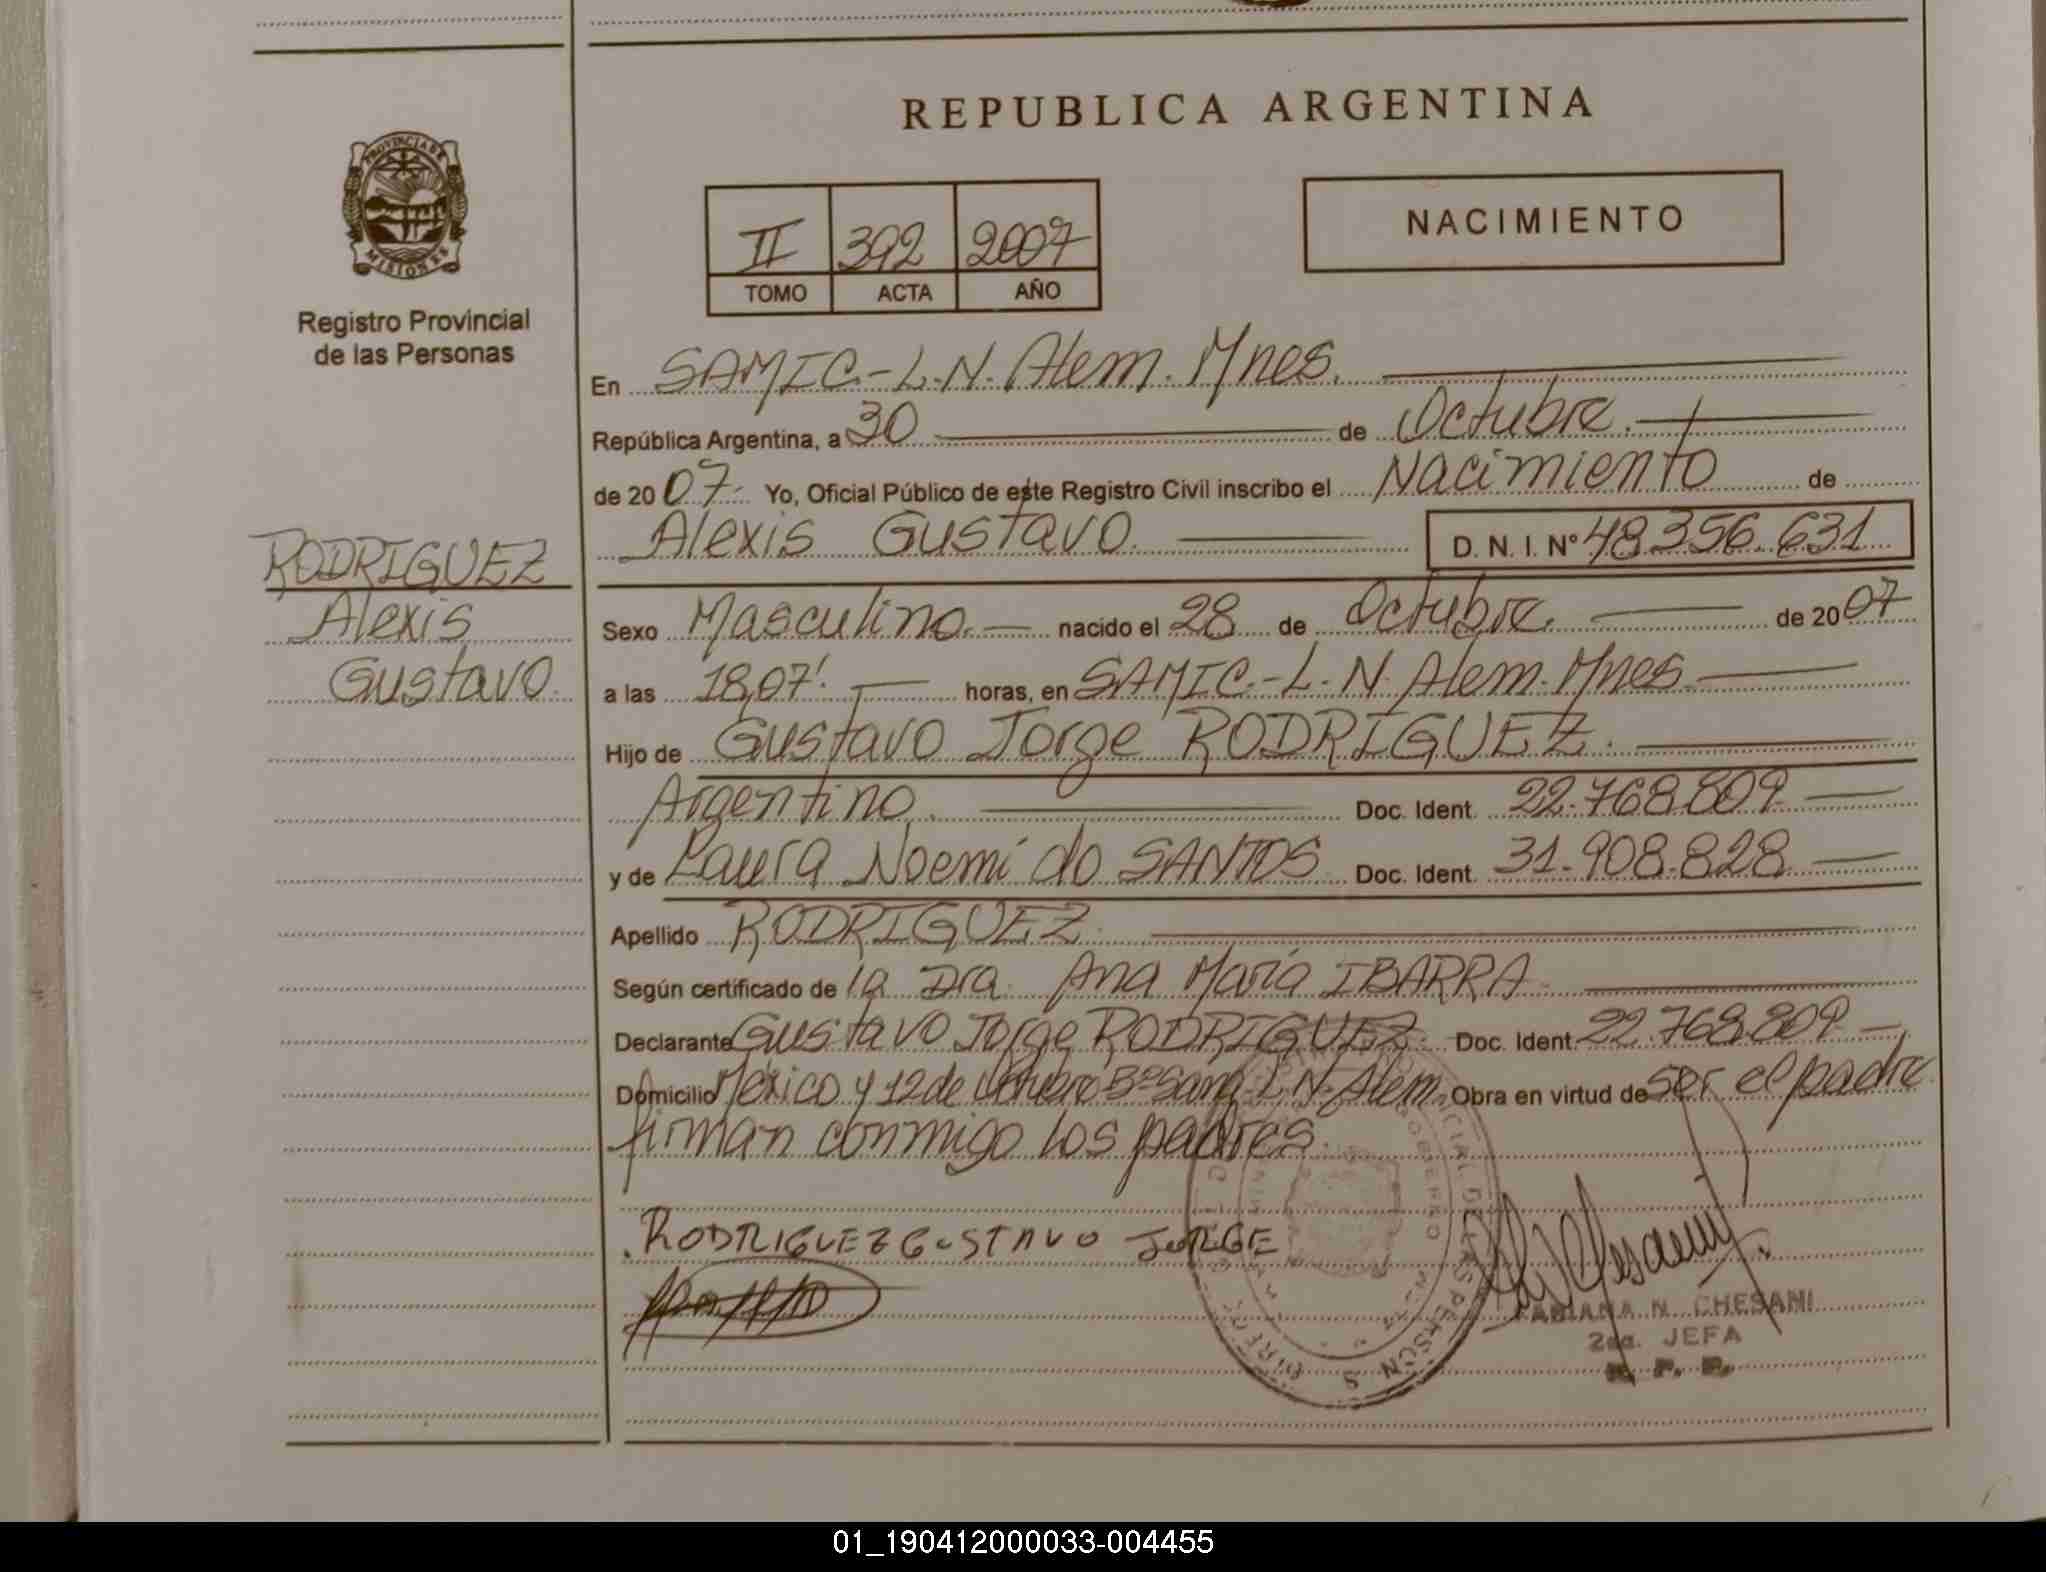 REPUBLICA ARGENTINA
PROVINCIA DE
MISIONES
Registro Provincial
de las Personas
II 392 2007
TOMO ACTA AÑO
NACIMIENTO
En SAMIC.-L.N. Alem. Mnes.
República Argentina, a 30 de Octubre.
de 2007. Yo, Oficial Público de este Registro Civil inscribo el Nacimiento de
Alexis Gustavo. D. N. I. Nº 48.356.631
RODRIGUEZ
Alexis
Gustavo.
Sexo Masculino. nacido el 28 de Octubre. de 2007
a las 18,07'. horas, en SAMIC.-L.N. Alem. Mnes.
Hijo de Gustavo Jorge RODRIGUEZ.
Argentino. Doc. Ident. 22.768.809.
y de Laura Noemí do SANTOS. Doc. Ident. 31.908.828.
Apellido RODRIGUEZ.
Según certificado de la Dra. Ana María IBARRA.
Declarante Gustavo Jorge RODRIGUEZ. Doc. Ident. 22.768.809.
Domicilio México y 12 de Bº Sarg. L.N. Alem. Obra en virtud de ser el padre.
firman conmigo los padres.
RODRIGUEZ GUSTAVO JORGE
FABIANA N. CHESANI
2da. JEFA
R. P. P.
01_190412000033-004455